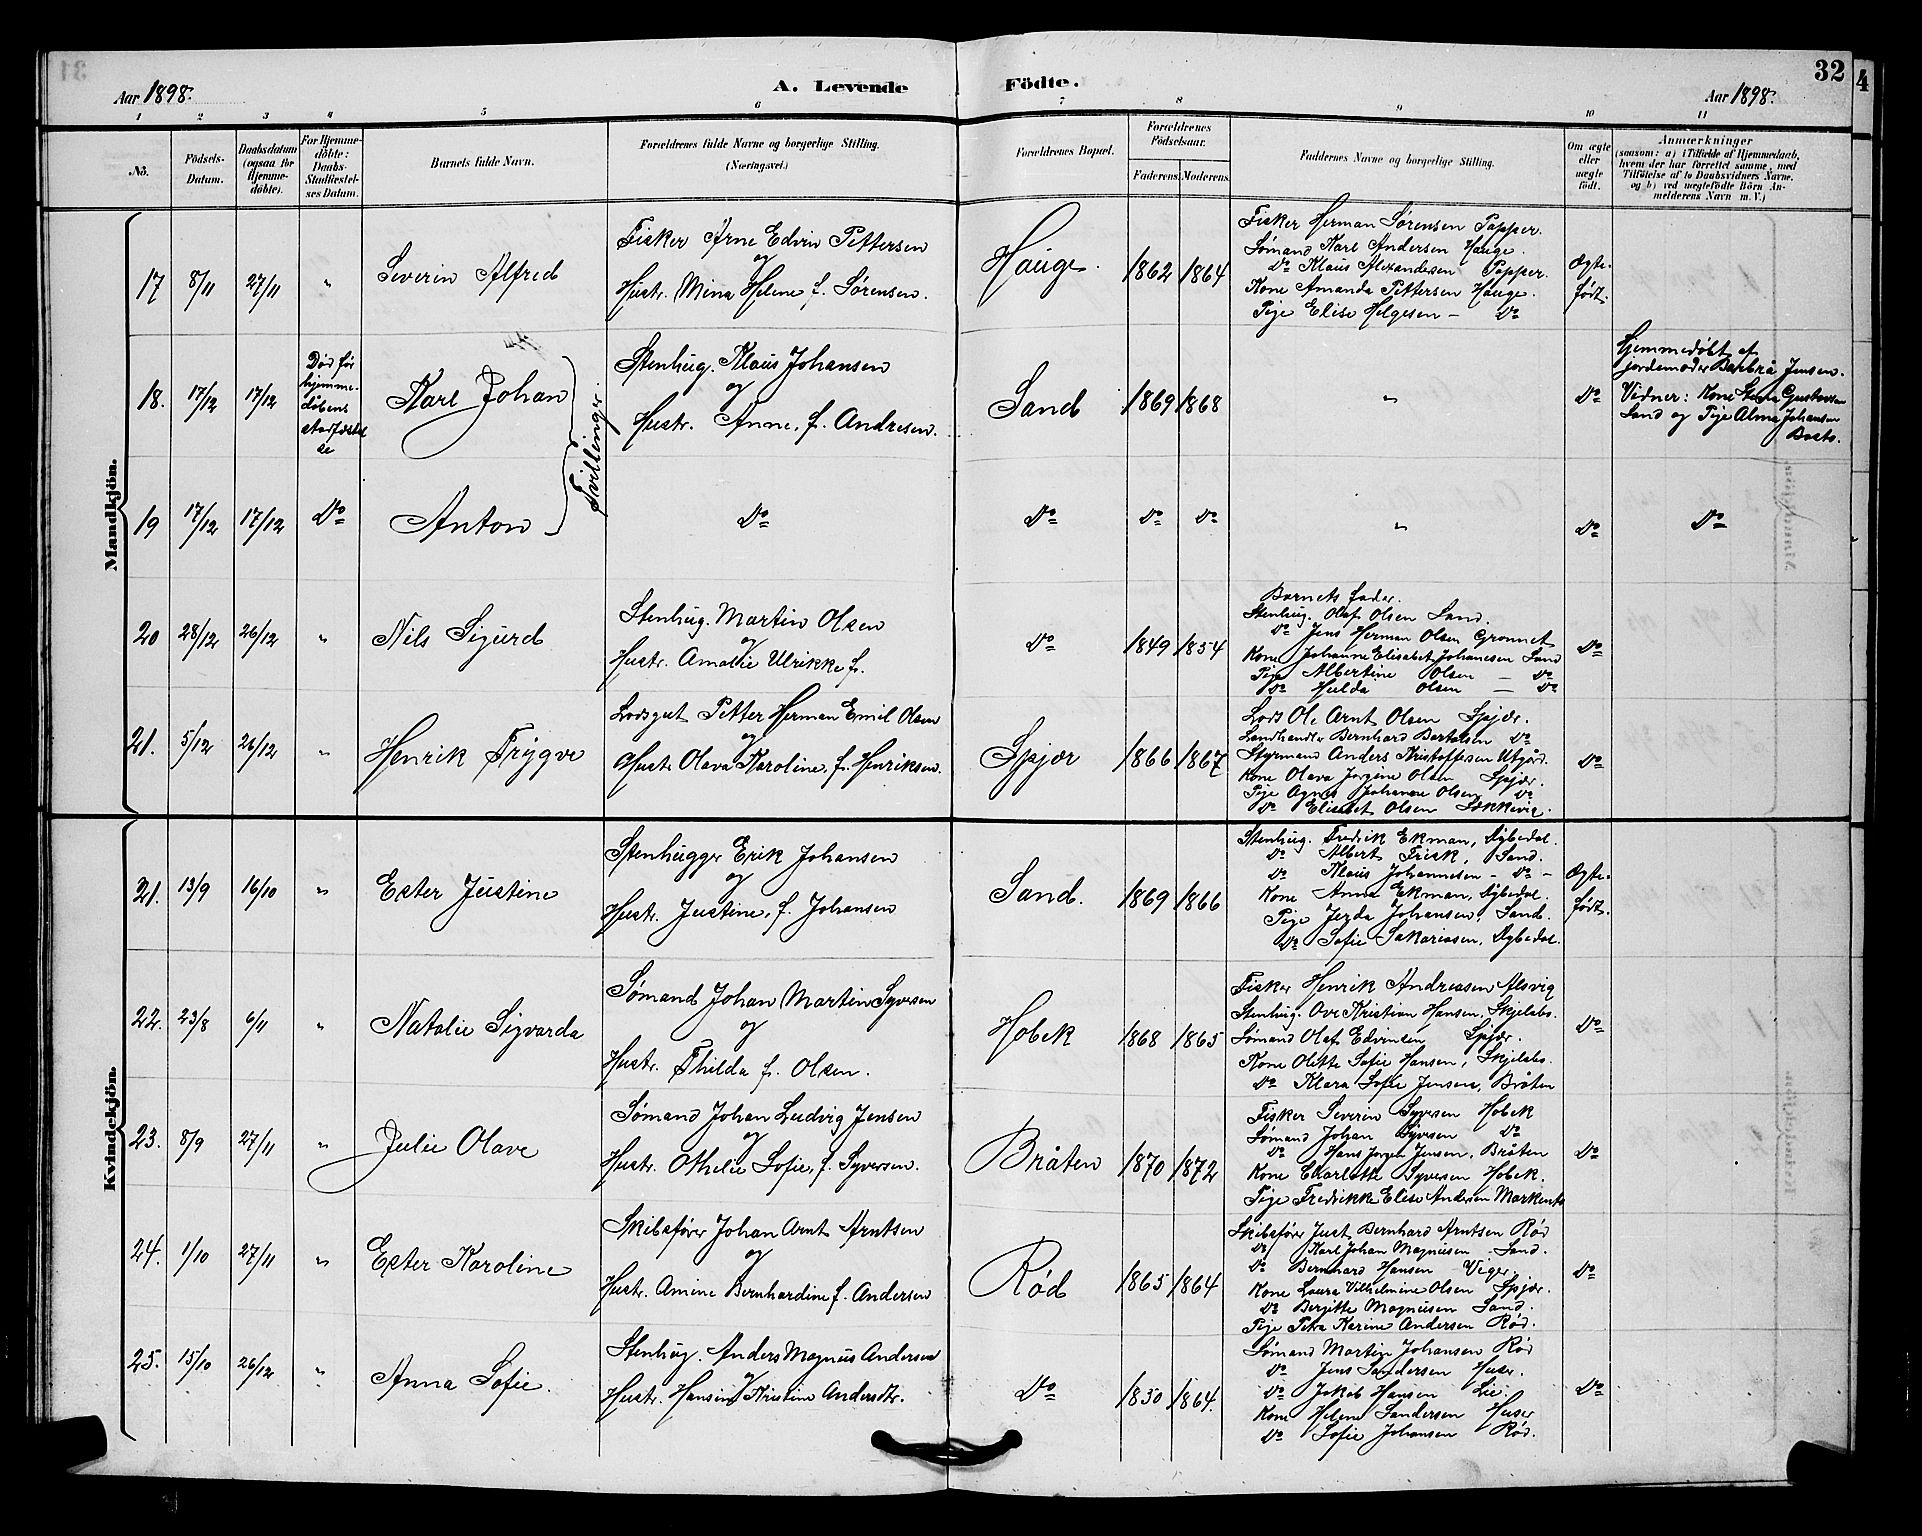 Aar 1898.
A. Levende Födte.
Aar 1898.
32
4
1 2 3 4 5 6 7 8 9 10 11
No.
Födsels-Datum.
Daabsdatum (ogsaa for Hjemme-döbte).
For Hjemme-döbte: Daabs-Stadfæstel-ses Datum.
Barnets fulde Navn.
Forældrenes fulde Navne og borgerlige Stilling. (Næringsvei.)
Forældrenes Bopæl.
Forældrenes Födselsaar.
Faderens. Moderens.
Faddernes Navne og borgerlige Stilling.
Om ægte eller uægte födt.
Anmærkninger
(saasom: a) i Tilfælde af Hjemmedaab,
hvem der har forrettet samme, med
Tilföielse af to Daabsvidners Navne.
og b) ved uægtefödte Börn An-
melderens Navn m. V.)
Mandkjön.
17 8/11 27/11 "
Severin Alfred
Fisker Arne Edvin Pettersen
og
Hustr. Mina Helene f. Sørensen.
Hauge. 1862 1864
Fisker Herman Sørensen Papper.
Sømand Karl Andersen Hauge.
Do Klaus Alexandersen Papper.
Kone Amanda Pettersen Hauge.
Pige Elise Helgesen - Do
Ægte-
født.
18. 17/12 17/12
Død før
hjemme-
dåbens
stadfæstel
se
Karl Johan
Tvillinger
Stenhug. Klaus Johansen
og
Hustr. Anne, f. Andresen.
Sand 1869 1868
"
Do
Hjemmedøbt af
jordemoder Barbra Jensen.
Vidner: Kone Stena Gustavsen
Sand og Pige Alma Johansen
19 17/12 17/12 Do
Anton
Do
Do Do Do
"
Do
Do
20 28/12 26/12 "
Nils Sigurd
Stenhug. Martin Olsen
og
Hustr. Amalie Ulrikke f.
Do 1849 1854
Barnets fader.
Stenhug. Olaf Olsen Sand.
Do Jens Herman Olsen Gronnet
Kone Johanne Elisabet Johanesen Sand
Pige Albertine Olsen - Do
Do Hulda Olsen - Do
Do
21. 5/12 26/12 "
Henrik Trygve
Lodsgut Petter Herman Emil Olsen
og
Hustr. Olava Karoline, f. Henriksen.
Spjær 1866 1867
Lods Ole Arnt Olsen Spjær.
Landhandler Bernhard Bertelsen Do
Styrmand Anders Kristoffersen Utgård.
Kone Olava Jorgine Olsen Spjær.
Pige Agnes Johanne Olsen Do
Do Elisabet Olsen Løkkevig.
Do
Kvindekjön.
21. 13/9 16/10 "
Ester Justine
Stenhugger Erik Johansen
og
Hustr. Justine, f. Johansen
Sand. 1869 1866
Stenhug. Fredrik Ekman, Dybedal.
Do Albert Frisk, Sand.
Do Klaus Johannesen - Do -
Kone Anna Ekman, Dybedal.
Pige Jerda Johansen, Sand.
Do Sofie Sakariasen, Dybedal.
Ægte-
født.
22. 23/8 6/11 "
Natalie Sigvarda
Sømand Johan Martin Syversen
og
Hustr. Thilda f. Olsen.
Hobek 1868 1865
Fisker Henrik Andreasen Alsvig
Stenhug. Ove Kristian Hansen, Skjelsbo.
Sømand Olaf Edvinsen Spjær.
Kone Olitte Sofie Hansen, Skjelsbo.
Do Klara Sofie Jensen, Bråten
Do
23. 8/9 27/11 "
Julie Olave
Sømand Johan Ludvig Jensen
og
Hustr. Othelie Sofie, f. Syversen.
Bråten 1870 1872
Fisker Severin Syversen Hobek
Sømand Johan Syversen Do
Do Hans Jorgen Jensen, Bråten
Kone Charlotte Syversen Hobek.
Pige Fredrikke Elise Andersen
Do
24. 1/10 27/11 "
Ester Karoline
Skibsfører Johan Arnt Arntsen
og
Hustr. Amine Bernhardine f. Andersen
Rød 1865 1864
Skibsfører Just Bernhard Arntsen Rød
Do Karl Johan Magnusen Sand.
Do Bernhard Hansen Viger.
Kone Laura Vilhelmine Olsen Spjær.
Do Bergitte Magnusen Sand.
Pige Petra Karine Andersen Rød.
Do
25. 15/10 26/12 "
Anna Sofie.
Stenhug. Anders Magnus Andersen
og
Hustr. Hansine Kristine Andersdtr.
Do 1830 1864.
Sømand Martin Johansen Rød
Do Jens Sandersen Huser.
Do Jakob Hansen Lie.
Kone Helene Sandersen Huser
Do Sofie Johansen Rød.
Do